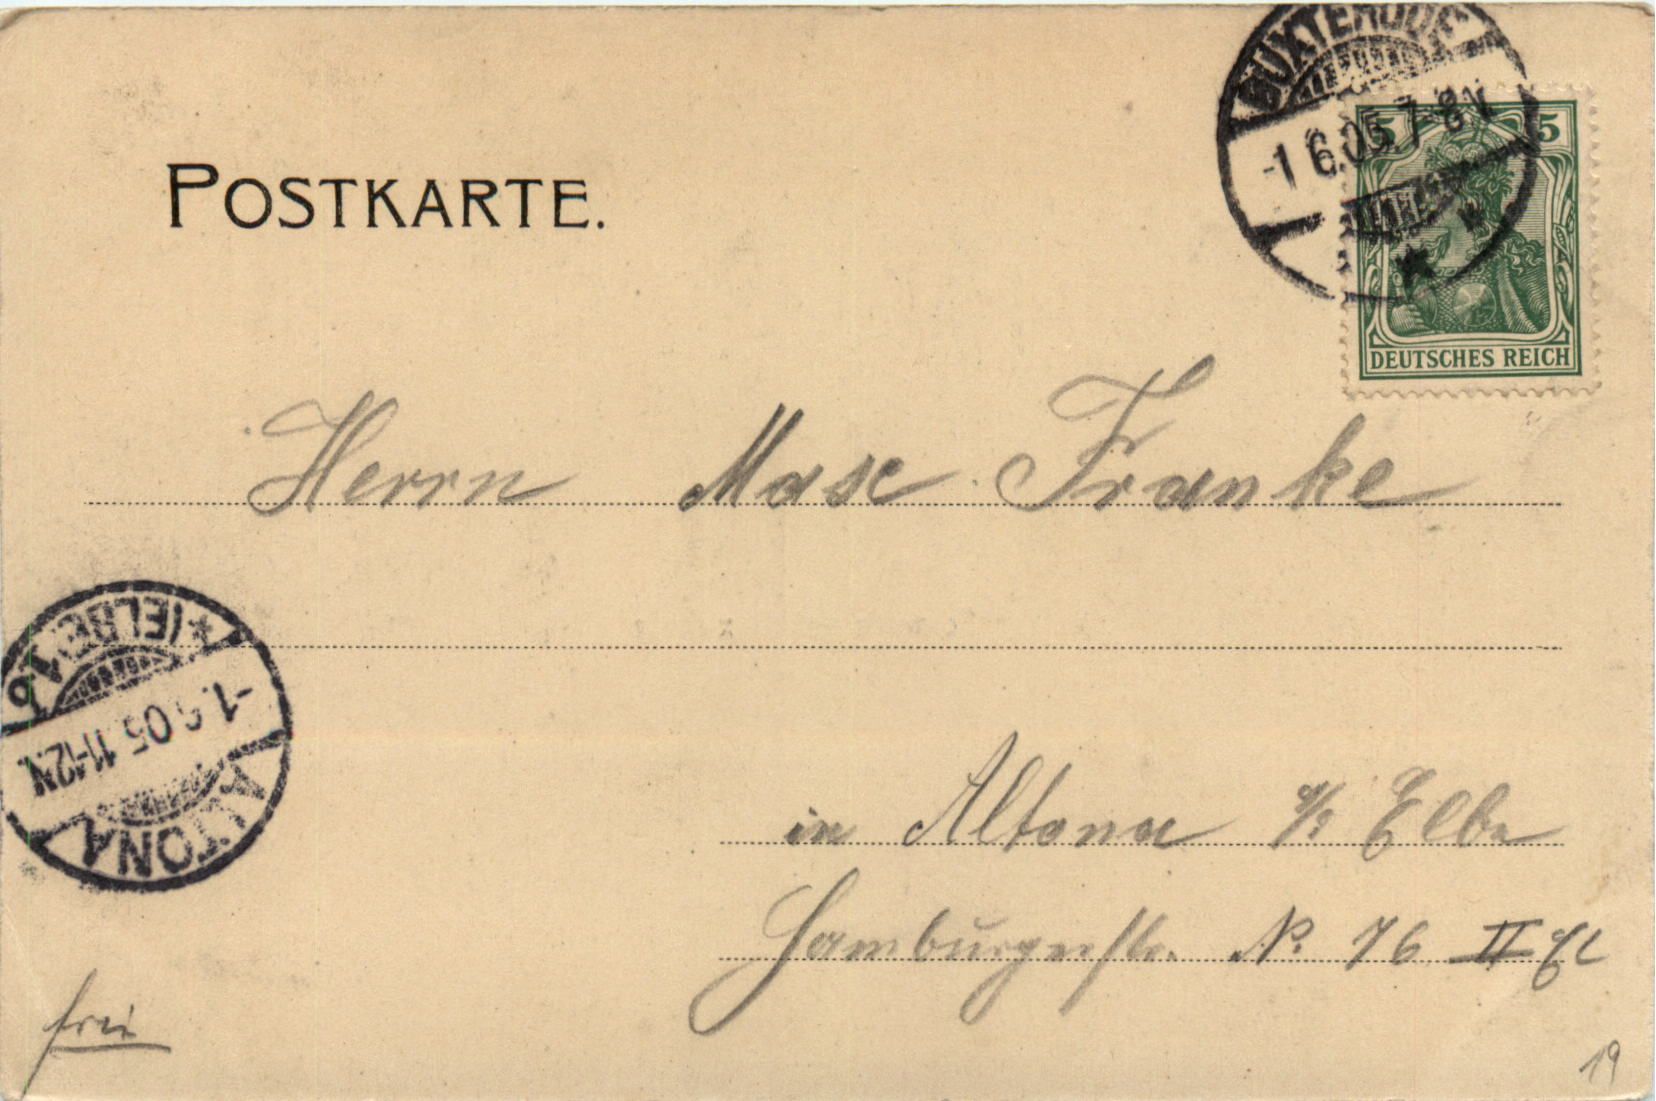 BUXTEHUDE
-1 6.05. 7-8 V.
5 5
DEUTSCHES REICH
POSTKARTE.
Herrn Max Franke
ALTONA
-1. 6. 05 11-12N.
(ELBE)
in Altona a/ Elbe
Hamburgerstr. No. 76 II
frei
19